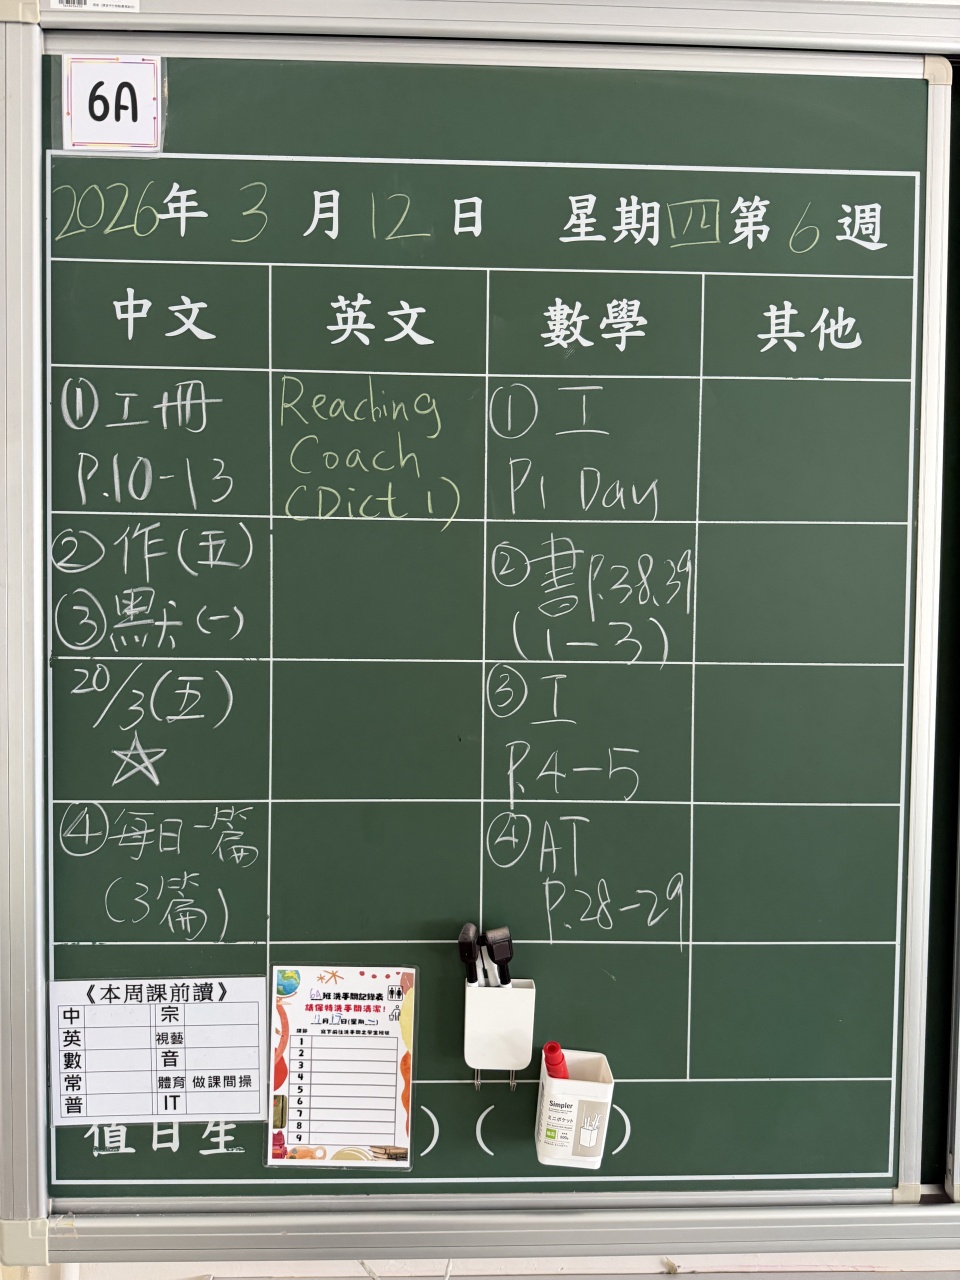 6A
2026年 3月12日 星期四第6週
中文 英文 數學 其他
①工冊
P.10-13
②作(五)
③默(一)
20/3(五)
☆
④每日一篇
(3篇)
Reaching
Coach
(Dict 1)
①工
P1 Day
②書P.38,39
(1-3)
③工
P.4-5
④AT
P.28-29
《本周課前讀》
中 宗
英 視藝
數 音
常 體育 做課間操
普 IT
值日生 ) ( )
6A班洗手間記錄表
請保持洗手間清潔!
1
2
3
4
5
6
7
8
9
Simpler
ミニポケット